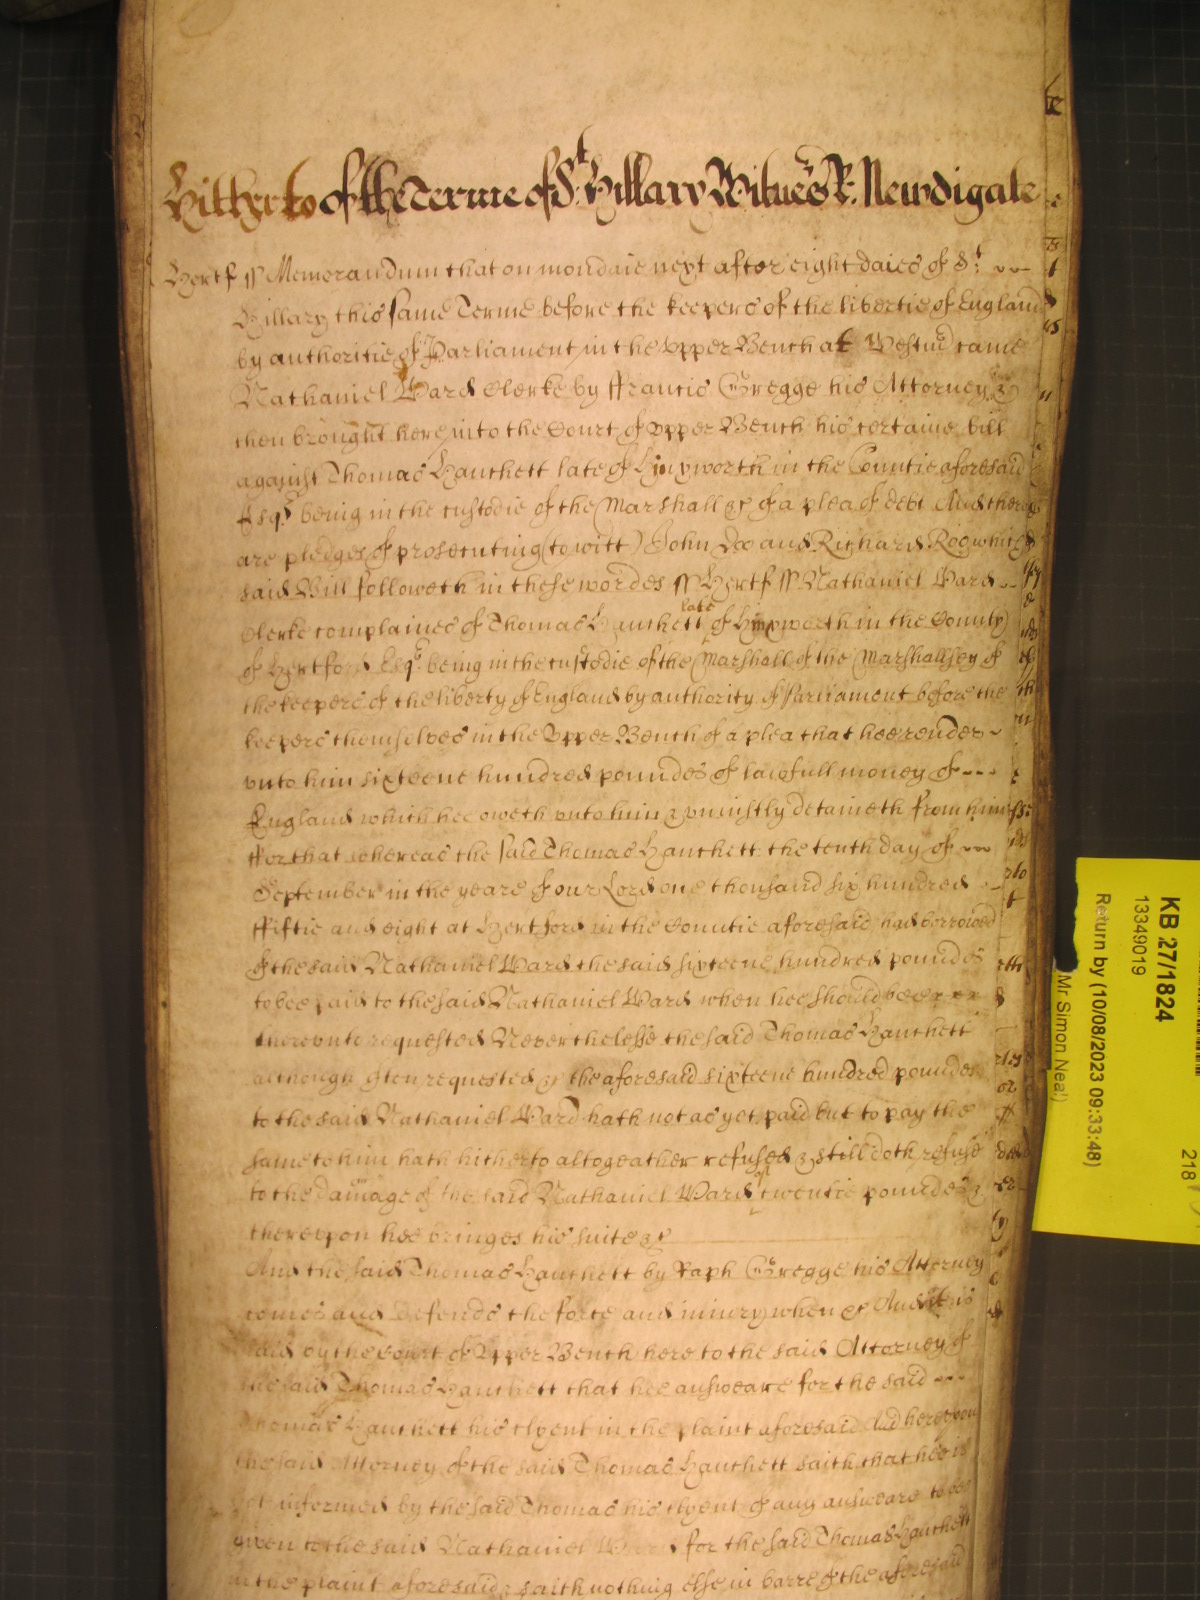 Hitherto of the Terme of St. Hillary Witnes R: Newdigate
Hertf ss Memorandum that on mondaie next after eight daies of St:
Hillary this same Terme before the keepers of the libertie of England
by authoritie of Parliament in the Upper Bench at Westmr came
Nathaniel Ward Clerke by ffrancis Gregge his Attorney &
then brought here into the Court of Upper Bench his certaine bill
against Thomas Hanchett late of Hinxworth in the Countie aforesaid
Esqr being in the custodie of the Marshall &c of a plea of debt And there
are pledges of prosecuting (to witt) John Doo and Richard Roo which
said Bill followeth in these wordes ss Hertf ss Nathaniel Ward
Clerke complaines of Thomas Hanchett late of Hinxworth in the County
of Hertford Esqr being in the custodie of the Marshall of the Marshallsey of
the keepers of the liberty of England by authority of Parliament before the
keepers themselves in the Upper Bench of a plea that hee render
unto him sixteene hundred poundes of lawfull money of
England which hee oweth unto him & uniustly detaineth from him
ffor that whereas the said Thomas Hanchett the tenth day of
September in the yeare of our Lord one thousand six hundred
ffiftie and eight at Hertford in the Countie aforesaid had borrowed
of the said Nathaniel Ward the said sixteene hundred poundes
to bee paid to the said Nathaniel Ward when hee should bee
thereunto requested Neverthelesse the said Thomas Hanchett
although often requested &c the aforesaid sixteene hundred poundes
to the said Nathaniel Ward hath not as yet paid but to pay the
same to him hath hitherto altogeather refused & still doth refuse
to the damage of the said Nathaniel Ward of twentie poundes &
thereupon hee bringes his suite &c
And the said Thomas Hanchett by Raph Gregge his Attorney
comes and defends the force and iniury when &c And it is
said by the Court of Upper Bench here to the said Attorney of
the said Thomas Hanchett that hee answeare for the said
Thomas Hanchett his clyent in the plaint aforesaid And hereupon
the said Attorney of the said Thomas Hanchett saith that hee is
not informed by the said Thomas his clyent of any answeare to bee
given to the said Nathaniel Ward for the said Thomas Hanchett
in the plaint aforesaid & saith nothing else in barre of the aforesaid
KB 27/1824
13349019
218
Return by (10/08/2023 09:33:48)
Mr Simon Neal)